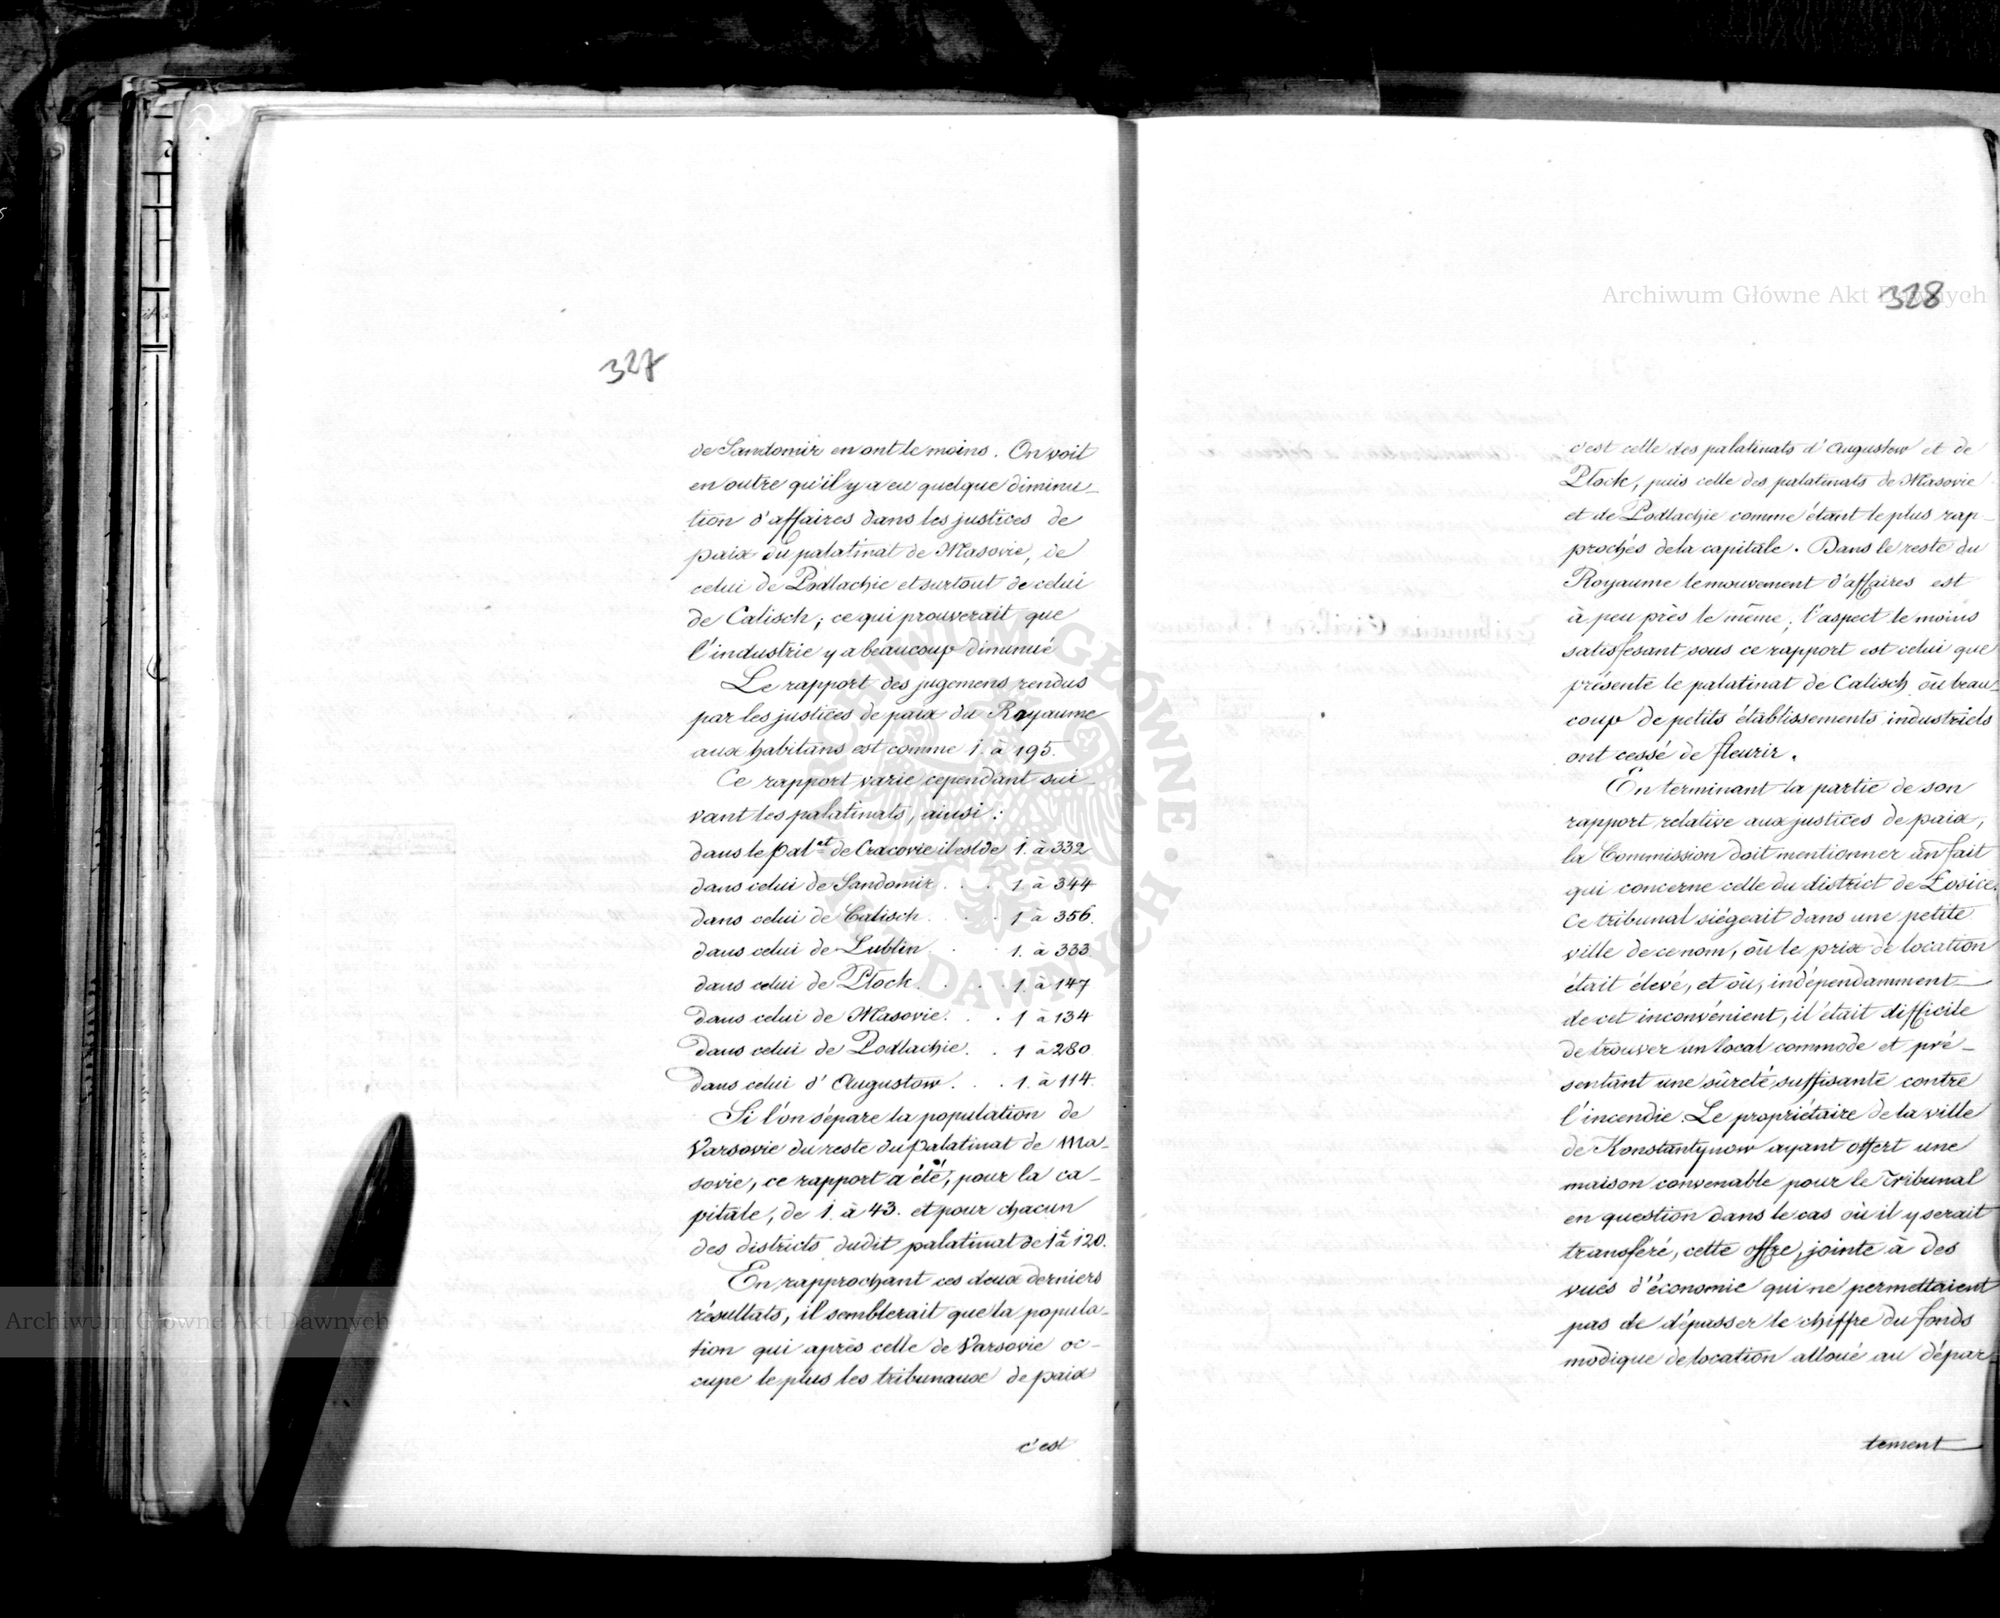 327
de Sandomir en ont le moins. On voit
en outre qu'il y a eu quelque diminu-
tion d'affaires dans les justices de
paix du palatinat de Masovie, de
celui de Podlachie et surtout de celui
de Calisch; ce qui prouverait que
l'industrie y a beaucoup diminué
Le rapport des jugemens rendus
par les justices de paix du Royaume
aux habitans est comme 1. à 195.
Ce rapport varie cependant sui-
vant les palatinats, ainsi:
dans le palat de Cracovie il est de 1. à 332
dans celui de Sandomir . . . 1. à 344
dans celui de Calisch . . . 1 à 356.
dans celui de Lublin . . 1. à 333
dans celui de Plock . . . 1. à 147
dans celui de Masovie . . . 1 à 134
dans celui de Podlachie . . 1 à 280
dans celui d'Augustow . . . 1. à 114.
Si l'on sépare la population de
Varsovie du reste du palatinat de Ma-
sovie, ce rapport a été, pour la ca-
pitale, de 1. à 43. et pour chacun
des districts dudit palatinat de 1 à 120.
En rapprochant ces deux derniers
résultats, il semblerait que la popula-
tion qui après celle de Varsovie oc-
cupe le plus les tribunaux de paix
c'est
328
c'est celle des palatinats d'Augustow et de
Plock, puis celle des palatinats de Masovie
et de Podlachie comme étant le plus rap-
prochés de la capitale. Dans le reste du
Royaume le mouvement d'affaires est
à peu près le même; l'aspect le moins
satisfesant sous ce rapport est celui que
présente le palatinat de Calisch où beau-
coup de petits établissements industriels
ont cessé de fleurir.
En terminant la partie de son
rapport relative aux justices de paix,
la Commission doit mentionner un fait
qui concerne celle du district de Łosice.
Ce tribunal siégeait dans une petite
ville de ce nom, où le prix de location
était élevé, et où, indépendamment
de cet inconvénient, il était difficile
de trouver un local commode et pré-
sentant une sûreté suffisante contre
l'incendie. Le propriétaire de la ville
de Konstantynow ayant offert une
maison convenable pour le Tribunal
en question dans le cas où il y serait
transféré, cette offre, jointe à des
vues d'économie qui ne permettaient
pas de dépasser le chiffre du fonds
modique de location alloué au dépar-
tement
Archiwum Główne Akt Dawnych
Archiwum Główne Akt Dawnych
ARCHIWUM GŁÓWNE AKT DAWNYCH